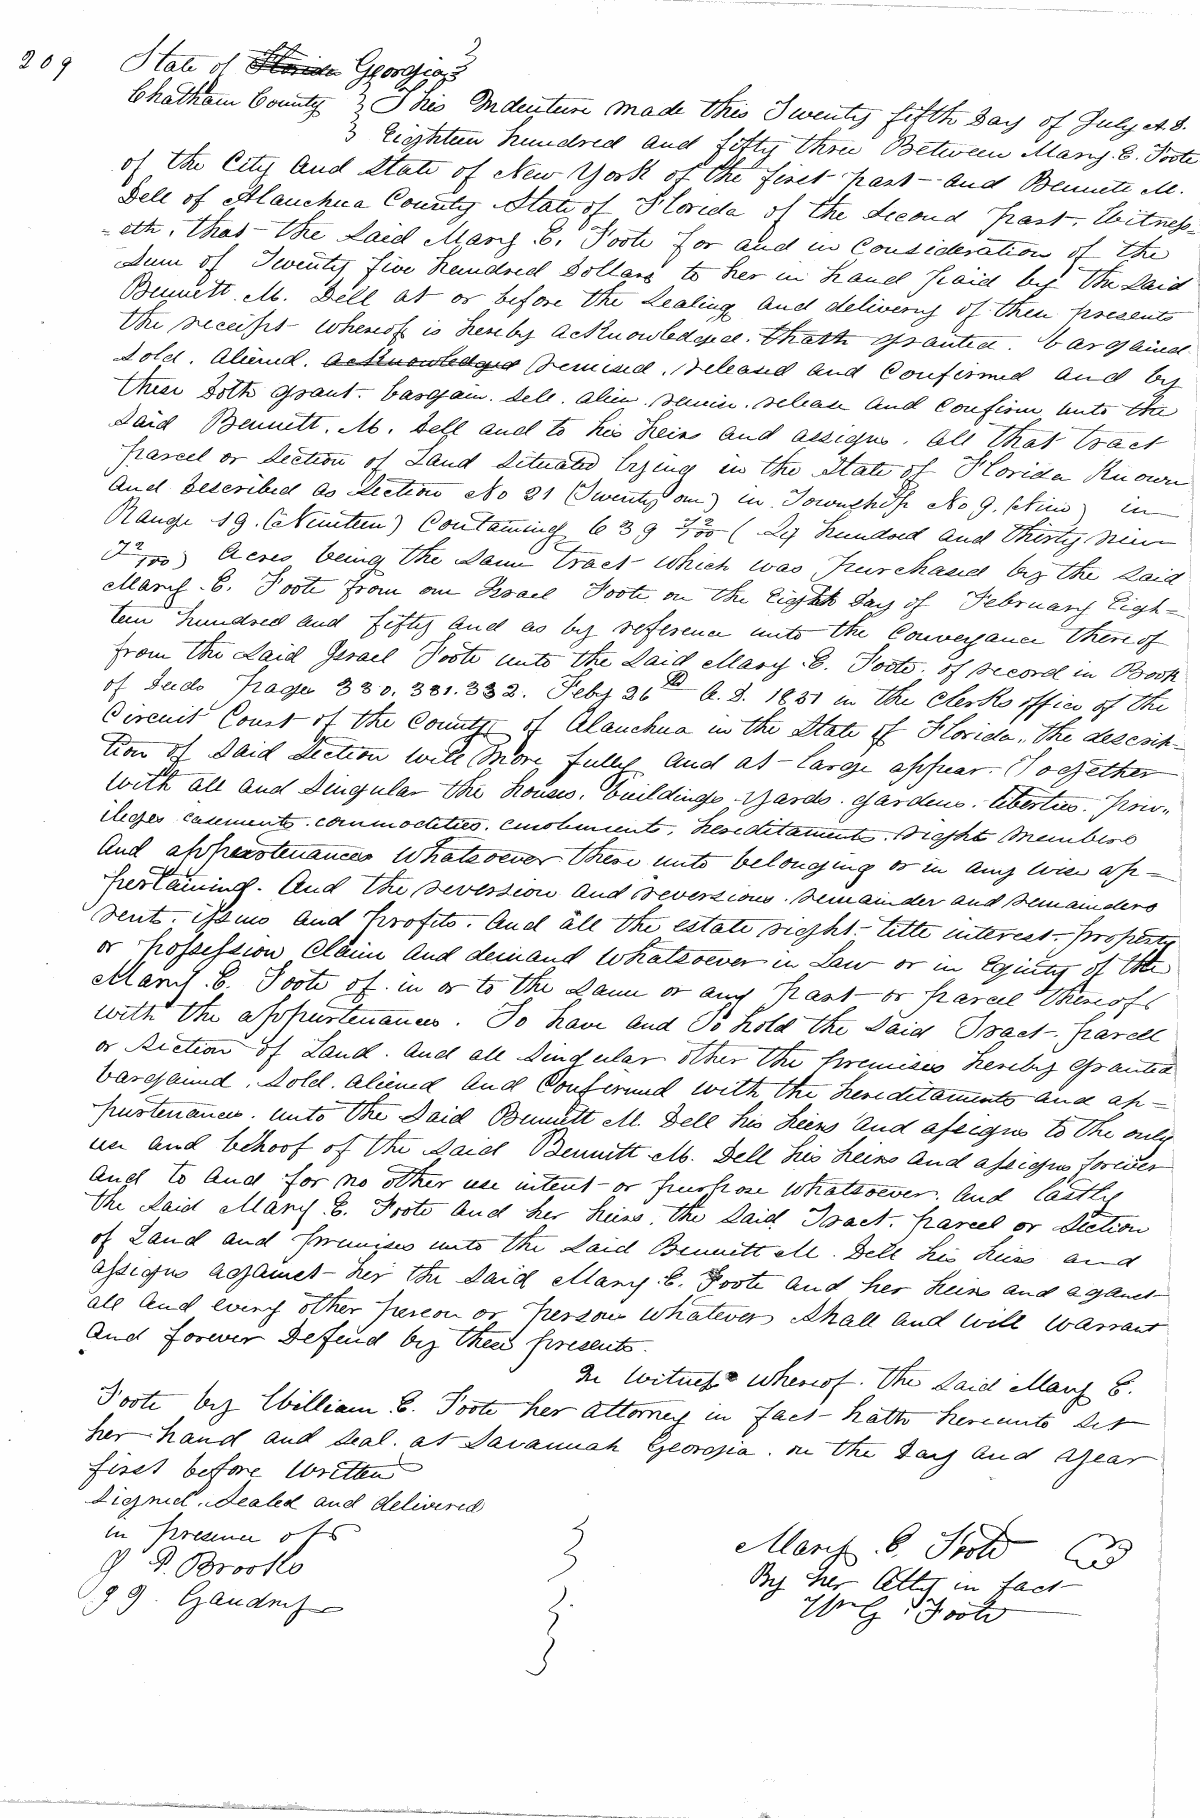 209
State of Florida Georgia
Chatham County This Indenture made this Twenty fifth Day of July A.D.
Eighteen hundred and fifty three Between Mary. E. Foote
of the City and State of New York of the first part and Bennett M.
Dell of Alauchua County State of Florida of the Second part. Witness-
-eth, that the Said Mary E. Foote for and in Consideration of the
Sum of Twenty five hundred Dollars to her in hand paid by the Said
Bennett. M. Dell at or before the Sealing and delivery of these presents
the receipt whereof is hereby acknowledged. thath granted. bargained
Sold. aliened. acknowledged remised. released and Confirmed and by
these Doth grant. bargain. Sell. alien. remise. release and Confirm unto the
Said Bennett. M. Dell and to his heirs and assigns. all that tract
parcel or Section of Land Situated lying in the State of Florida Known
and Described as Section No 21 (Twenty one) in Township No 9. (Nine) in
Range 19. (Nineteen) Containing 639 72/100 (Six hundred and thirty nine
72/100) Acres being the Same tract which was purchased by the Said
Mary. E. Foote from one Israel Foote on the Eighth Day of February Eigh=
teen hundred and fifty and as by reference unto the Conveyance thereof
from the Said Israel Foote unto the Said Mary. E. Foote. of record in Book
of Deeds pages 330. 331. 332. Feby 26th A.D. 1851 in the Clerks office of the
Circuit Court of the County of Alauchua in the State of Florida. the descrip-
tion of Said Section will more fully and at large appear. Together
with all and Singular the houses. buildings. yards. gardens. liberties. priv-
ileges easments. commodities. emoluments. hereditaments. right members
and appurtenances whatsoever there unto belonging or in any wise ap=
pertaining. And the reversion and reversions. remainder and remainders
rent. issues and profits. And all the estate right title interest. property
or possession Claim and demand whatsoever in Law or in Equity of the
Mary. E. Foote of. in or to the Same or any part or parcel thereof
with the appurtenances. To have and To hold the Said Tract. parcel
or Section of Land. and all Singular other the premises hereby granted
bargained. Sold. aliened and Confirmed with the hereditaments and ap=
purtenances. unto the Said Bennett M. Dell his heirs and assigns to the only
use and behoof of the Said Bennett. M. Dell his heirs and assigns forever
and to and for no other use intent or purpose whatsoever. And lastly
the Said Mary. E. Foote and her heirs. the Said Tract. parcel or Section
of Land and premises unto the Said Bennett M. Dell his heirs and
assigns against her the Said Mary. E. Foote and her heirs and against
all and every other person or persons whatever Shall and will warrant
and forever Defend by these presents.
In Witness whereof. the Said Mary E.
Foote by William. E. Foote her attorney in fact hath hereunto Set
her hand and Seal. at Savannah Georgia. on the Day and year
first before written
Signed. Sealed and delivered
in presence of
P. Brooks
Gaudry
Mary. E. Foote
By her Atty in fact
Wm G. Foote